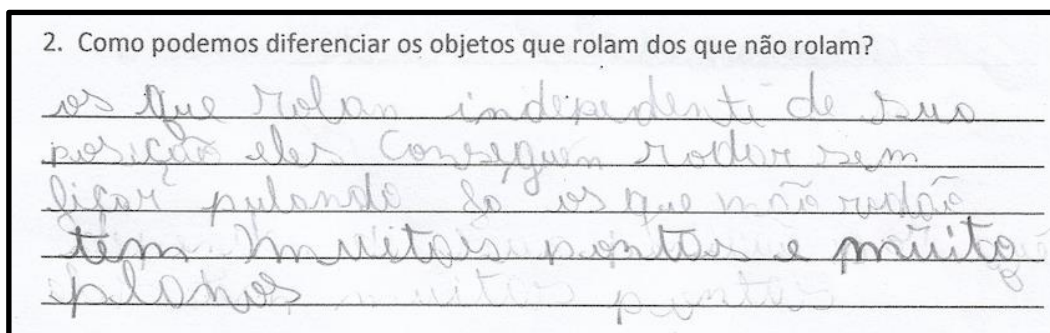 2. Como podemos diferenciar os objetos que rolam dos que não rolam?
os que rolan independenti de sua
posição eles conseguen rodar sem
ficar pulando Ja os que não rodão
tem muitas pontas e muito
planos